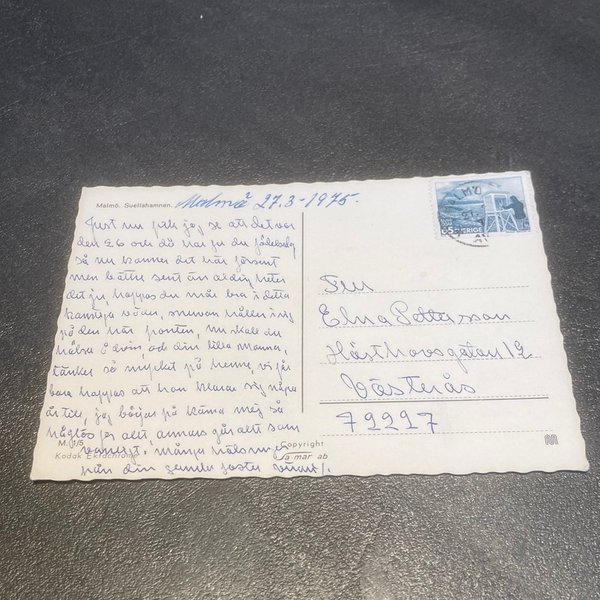 Malmö. Suellshamnen.
Malmö 27.3-1975.
Just nu fick jag se att det var
den 26 och då har ju du födelsedag
så nu kommer det här försent
men bättre sent än aldrig heter
det ju, hoppas du mår bra i detta
konstiga väder, snewan håller i sig
på den här fronten, nu skall du
hälsa Edvin, och din lilla mamma,
tänker så mycket på henne, vi får
bara hoppas att hon klarar sig några
år till, jag börjar på känna mej så
för allt annars går allt som
vanligt. många hälsningar
från din gamla faster
M. 1/5
Kodak Ektachrome
Copyright
a-mar ab
65 SVERIGE
Fru
Elna Pettersson
Hästhovsgatan 12
Västerås
72227